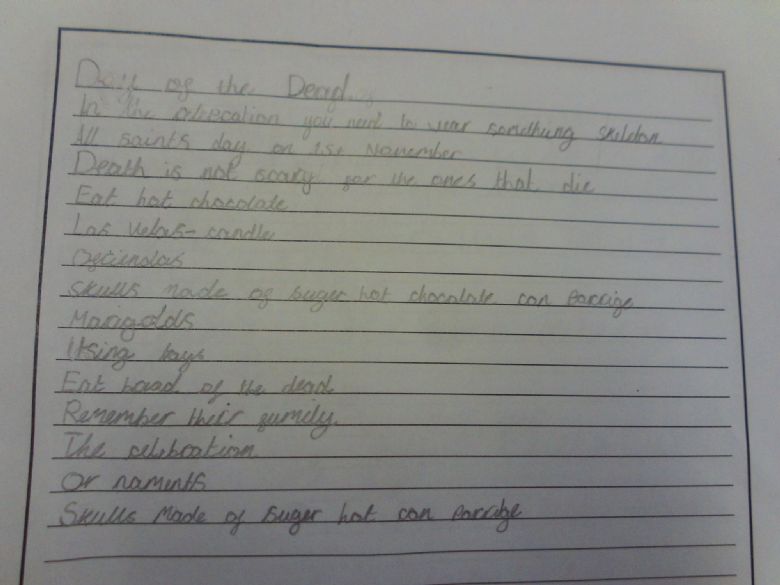 Day of the Dead
In the celebration you need to wear something skeldon
All saints day on 1st November
Death is not scary for the ones that die
Eat hot chocolate
Las Velas- candle
Ofciendas
Skulls made of suger hot chocolate con Porrige
Marigolds
Using toys
Eat bread of the dead
Remember their family.
The celebration
Or naments
Skulls Made of suger hot con Porrige